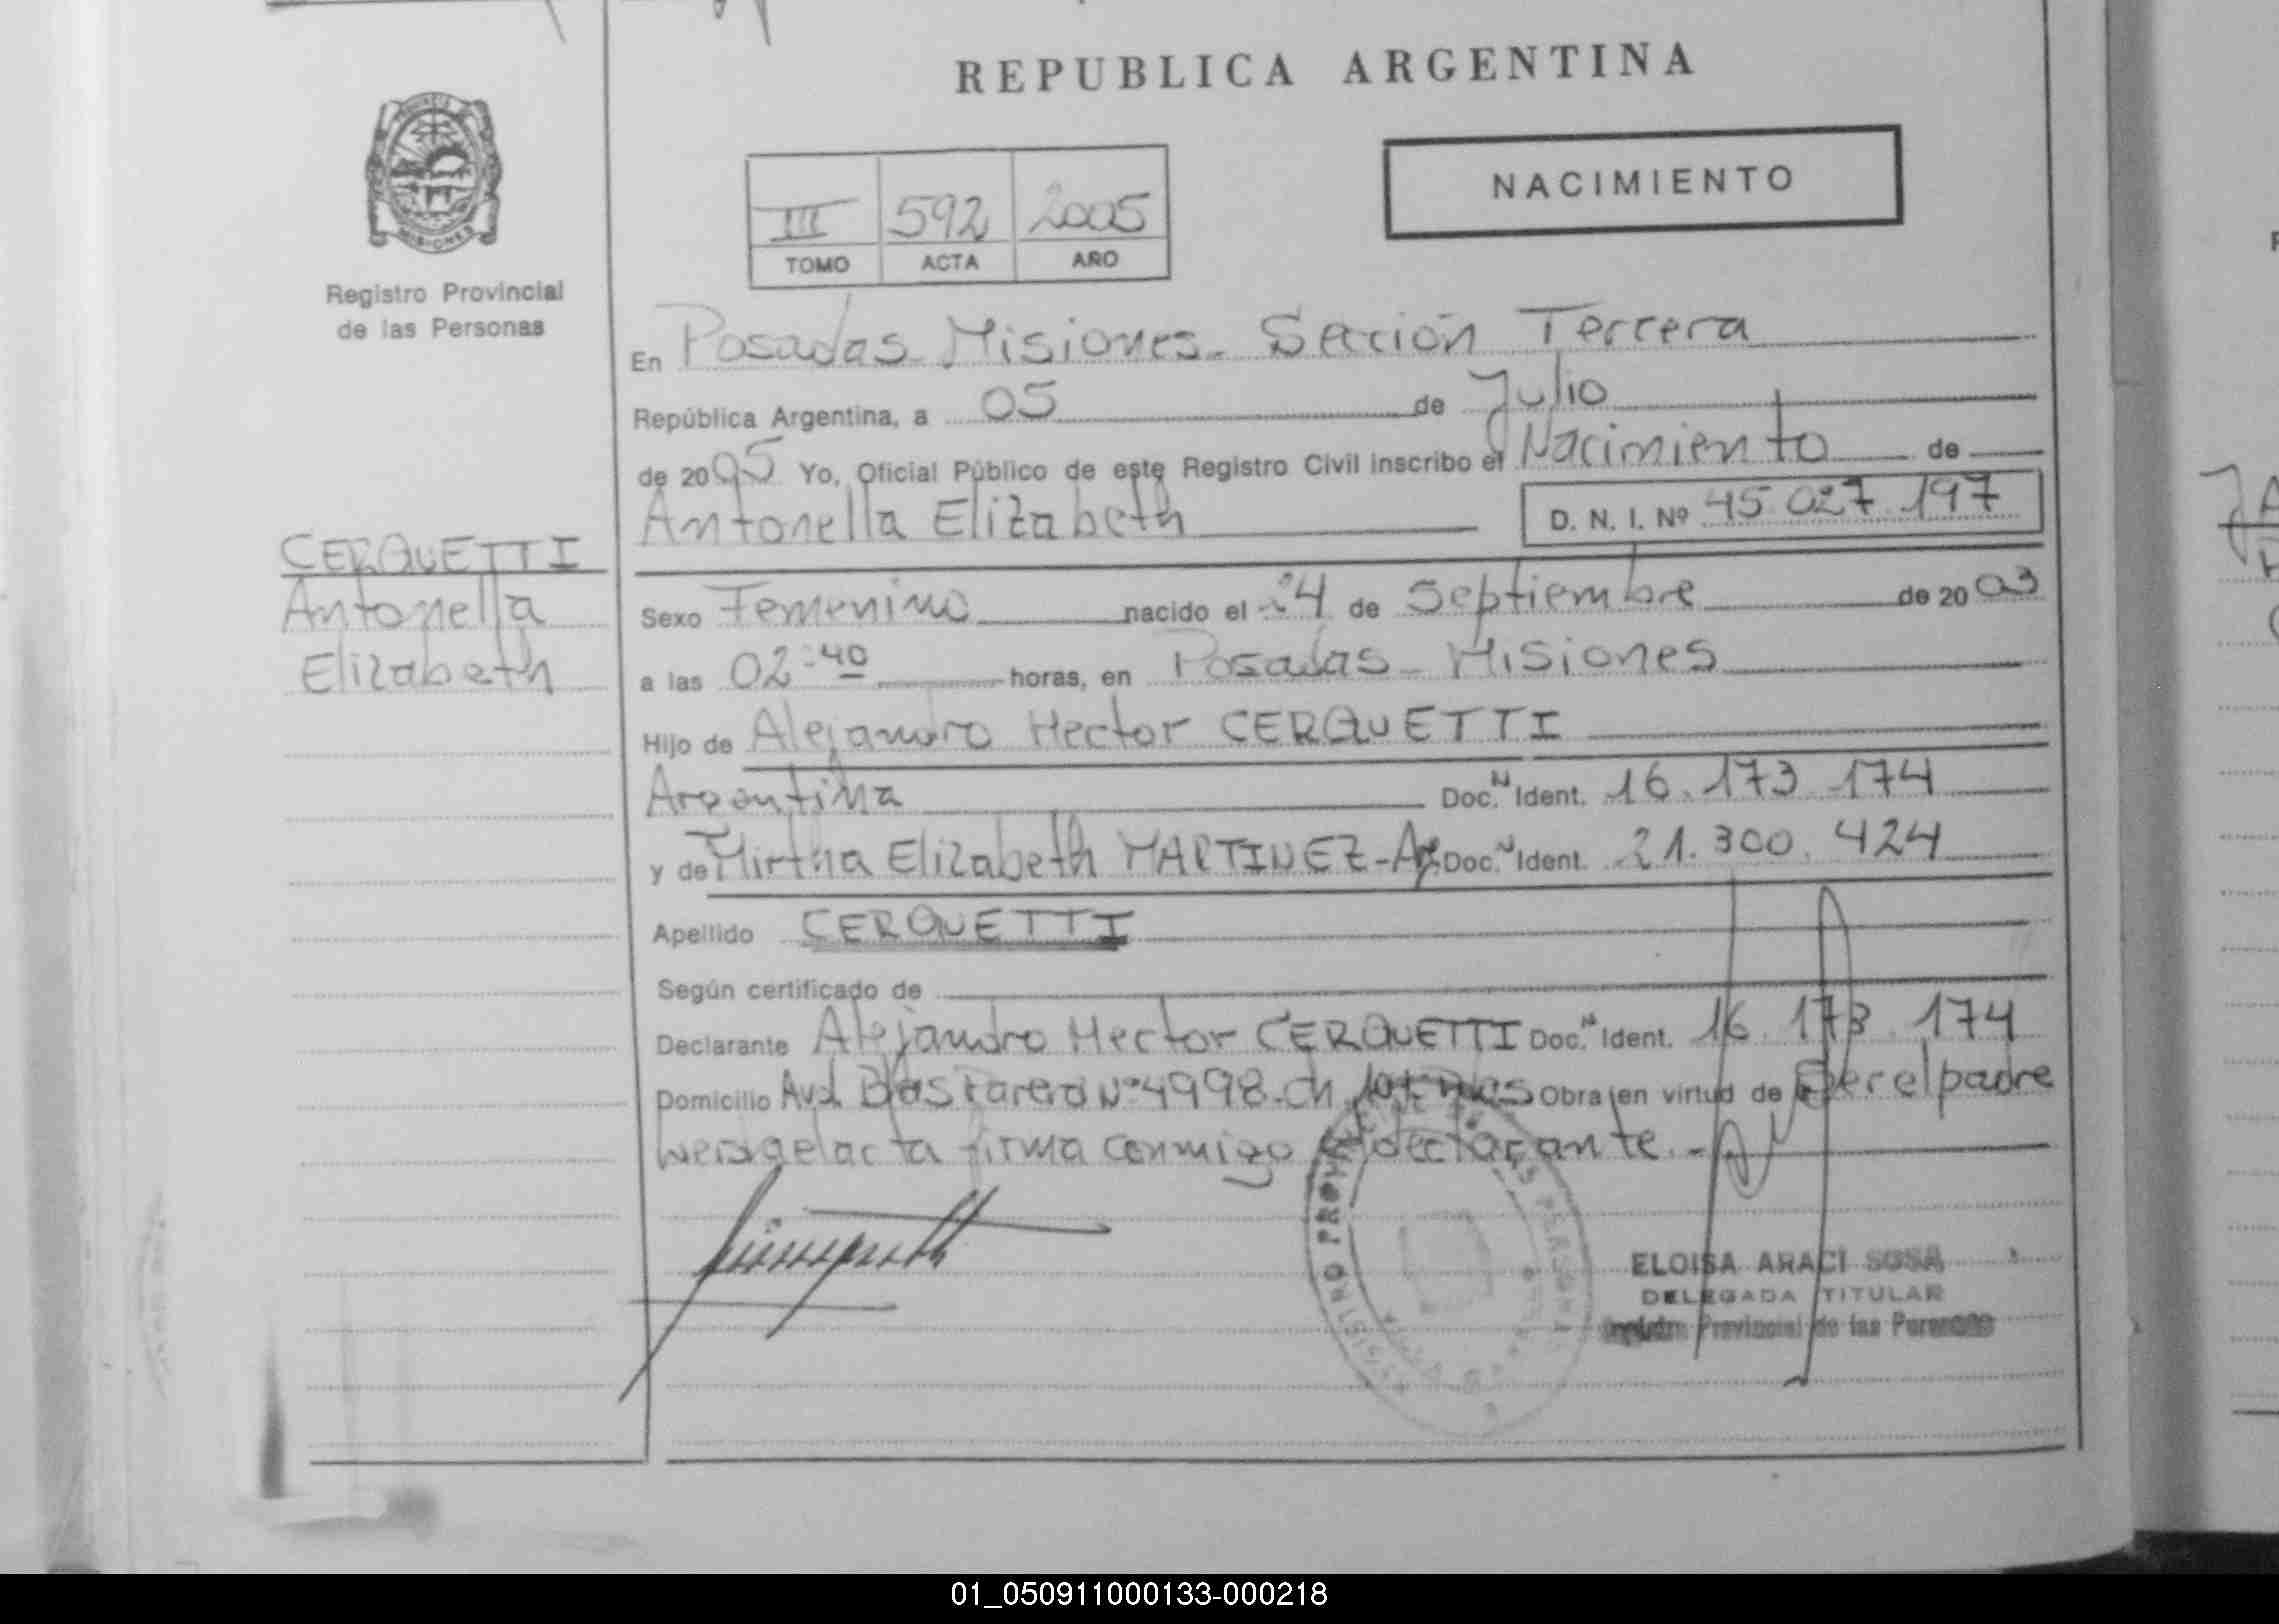 REPUBLICA ARGENTINA
PROVINCIA DE
MISIONES
Registro Provincial
de las Personas
NACIMIENTO
III 592 2005
TOMO ACTA AÑO
En Posadas Misiones. Sección Tercera
República Argentina, a 05 de Julio
de 2005 Yo, Oficial Público de este Registro Civil inscribo el Nacimiento de
Antonella Elizabeth D. N. I. Nº 45 027 197
CERQUETTI
Antonella
Elizabeth
Sexo Femenino nacido el 24 de Septiembre de 2003
a las 02:40 horas, en Posadas Misiones
Hijo de Alejandro Hector CERQUETTI
Argentina Doc. N Ident. 16.173 174
y de Mirtha Elizabeth MARTINEZ - Doc. N Ident. 21.300.424
Apellido CERQUETTI
Según certificado de
Declarante Alejandro Hector CERQUETTI Doc. N Ident. 16.173.174
Domicilio Avd. Blas Parera Nº 4998 - Ch Obra en virtud de Ser el padre
acta firma conmigo el declarante. -
ELOISA ARACI SOSA
DELEGADA TITULAR
Registro Provincial de las Personas
01_050911000133-000218